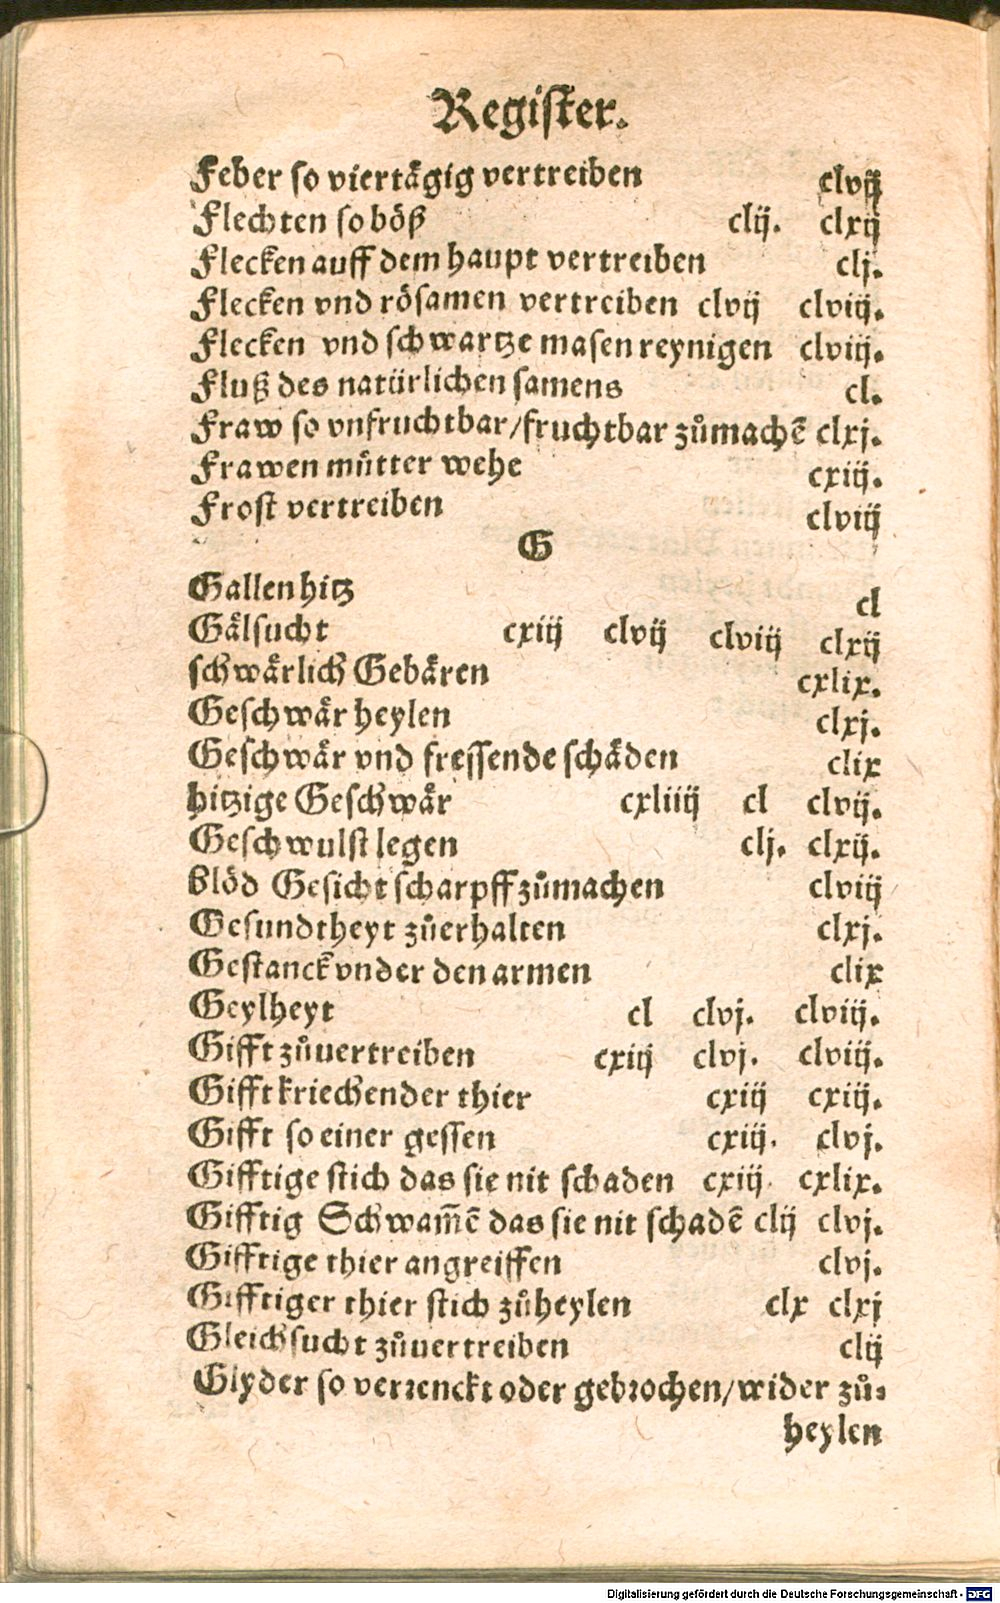 Register.
Feber so viertägig vertreiben clvij
Flechten so böß clij. clxij
Flecken auff dem haupt vertreiben clj.
Flecken vnd rösamen vertreiben clvij clviij.
Flecken vnd schwartze masen reynigen clviij.
Fluß des natürlichen samens cl.
Fraw so vnfruchtbar/fruchtbar zůmachē clxj.
Frawen můtter wehe cxiij.
Frost vertreiben clviij
G
Gallen hitz cl
Gälsucht cxiij clvij clviij clxij
schwärlich Gebären cxlix.
Geschwär heylen clxj.
Geschwär vnd fressende schäden clix
hitzige Geschwär cxliiij cl clvij.
Geschwulst legen clj. clxij.
Blöd Gesicht scharpff zůmachen clviij
Gesundtheyt zůerhalten clxj.
Gestanck vnder den armen clix
Geylheyt cl clvj. clviij.
Gifft zůuertreiben cxiij clvj. clviij.
Gifft kriechender thier cxiij cxiij.
Gifft so einer gessen cxiij. clvj.
Gifftige stich das sie nit schaden cxiij. cxlix.
Gifftig Schwam̄ē das sie nit schadē clij clvj.
Gifftige thier angreiffen clvj.
Gifftiger thier stich zůheylen clx clxj
Gleichsucht zůuertreiben clij
Glyder so verrenckt oder gebrochen/wider zů⸗
heylen
Digitalisierung gefördert durch die Deutsche Forschungsgemeinschaft - DFG